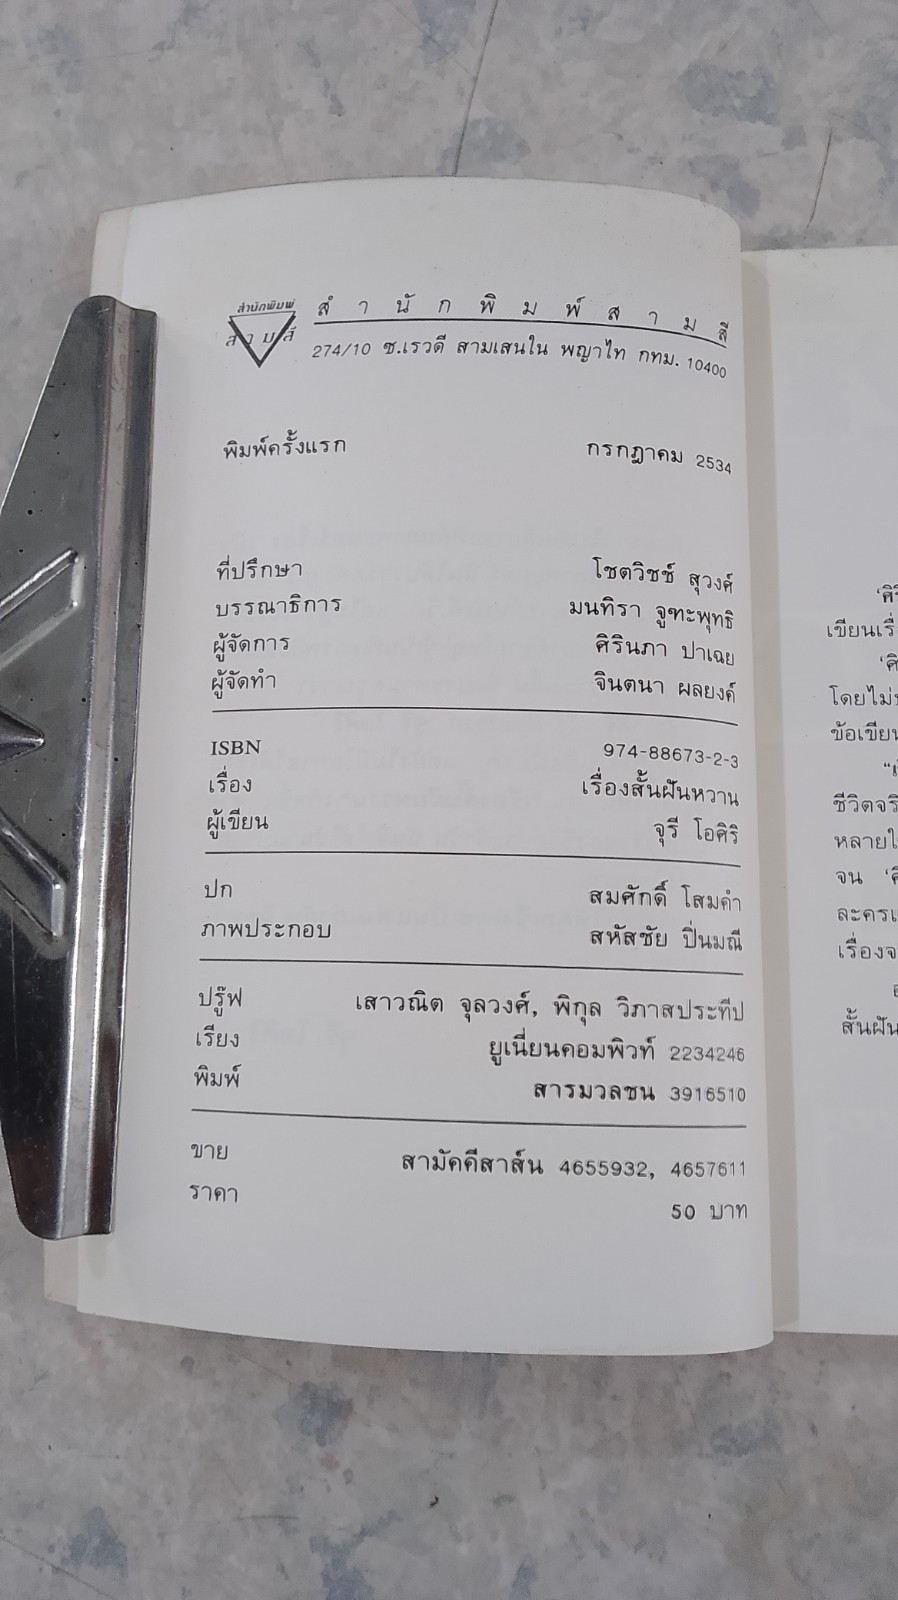 สำนักพิมพ์
สามสี
สำนักพิมพ์สามสี
274/10 ซ.เรวดี สามเสนใน พญาไท กทม. 10400
พิมพ์ครั้งแรก กรกฎาคม 2534
ที่ปรึกษา โชตวิชช์ สุวงศ์
บรรณาธิการ มนทิรา จูฑะพุทธิ
ผู้จัดการ ศิรินภา ปาเฉย
ผู้จัดทำ จินตนา ผลยงค์
ISBN 974-88673-2-3
เรื่อง เรื่องสั้นฝันหวาน
ผู้เขียน จุรี โอศิริ
ปก สมศักดิ์ โสมคำ
ภาพประกอบ สหัสชัย ปิ่นมณี
ปรู๊ฟ เสาวณิต จุลวงศ์, พิกุล วิภาสประทีป
เรียง ยูเนี่ยนคอมพิวท์ 2234246
พิมพ์ สารมวลชน 3916510
ขาย สามัคคีสาส์น 4655932, 4657611
ราคา 50 บาท
เขียนเรื่
โดยไม่
ข้อเขียน
ชีวิตจริ
หลายใ
จน
ละคร
เรื่องจ
สั้นฝัน